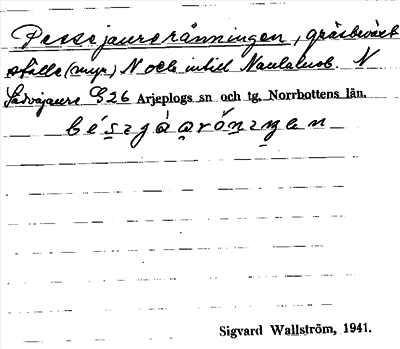 Pessejaureränningen, gräsbeväxt
ställe (myr) N och intill Naulaluob. N
Sädvajaure G26 Arjeplogs sn och tg, Norrbottens län.
Sigvard Wallström, 1941.